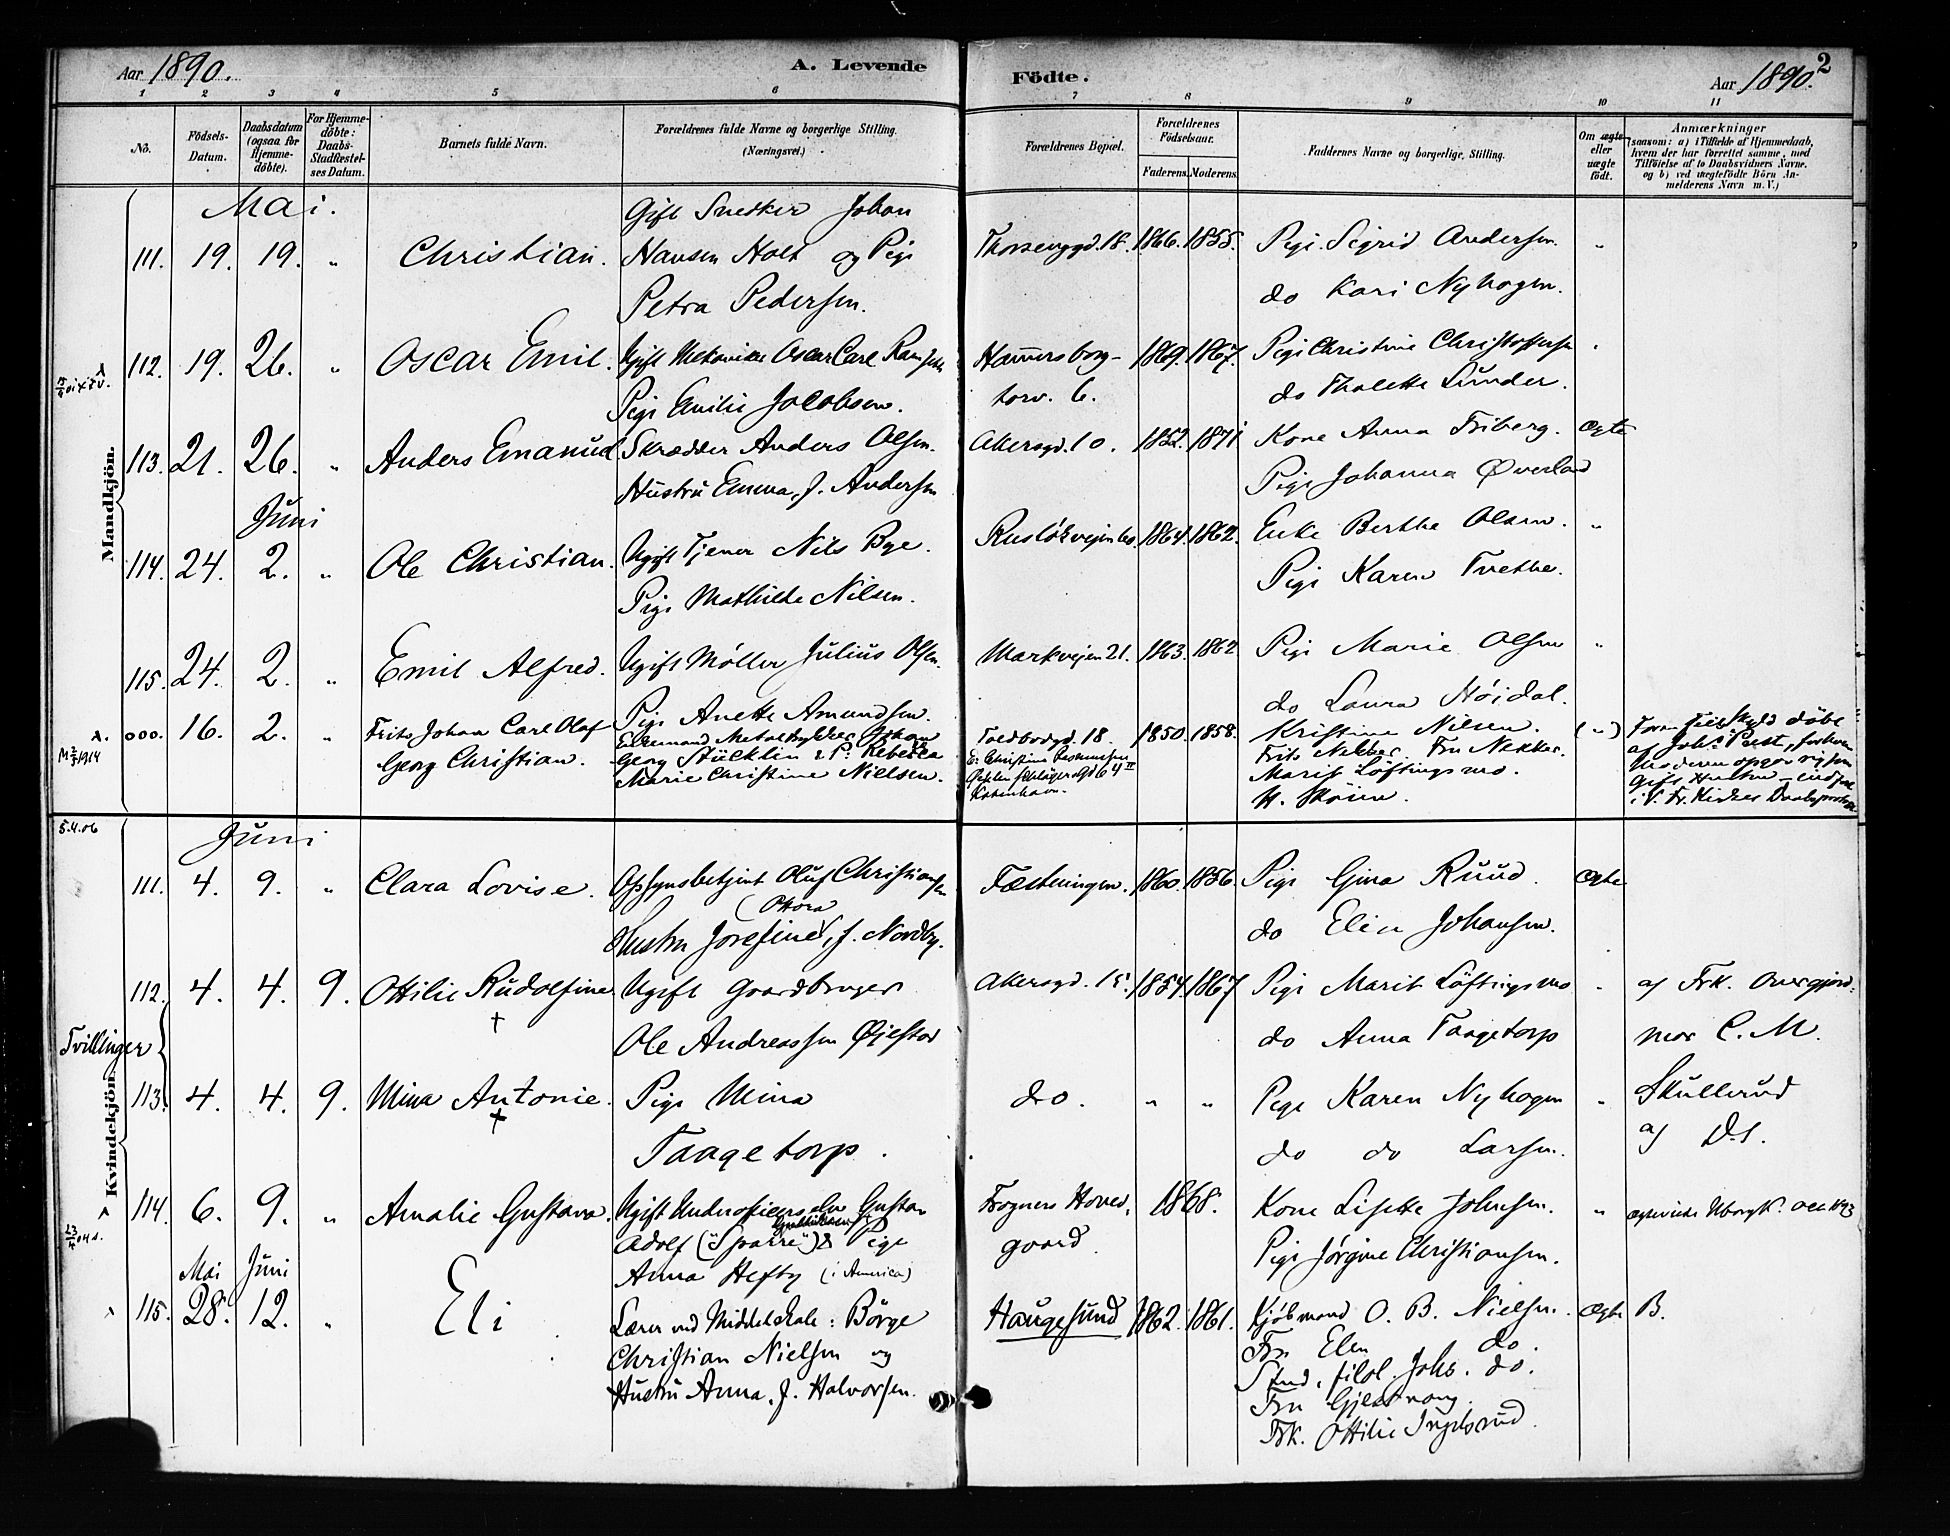 Aar 1890. A. Levende Födte. Aar 1890. 2
1 2 3 4 5 6 7 8 9 10 11
No. Födsels-Datum. Daabsdatum (ogsaa for Hjemme-döbte). For Hjemme-döbte: Daabs-Stadfæstel-ses Datum. Barnets fulde Navn. Forældrenes fulde Navne og borgerlige Stilling. (Næringsvei.) Forældrenes Bopæl. Forældrenes Födselsaar. Faderens. Moderens. Faddernes Navne og borgerlige Stilling. Om ægte eller uægte födt. Anmærkninger (saasom: a) i Tilfælde af Hjemmedaab, hvem der har forrettet samme, med Tilföielse af to Daabsvidners Navne. og b) ved uægtefödte Börn An-melderens Navn m. V.)
Mandkjön.
Mai.
Gift Snedker Johan
111. 19. 19. " Christian. Hansen Holt og Pige Thorsenggd. 18. 1866. 1855. Pige Sigrid Andersen. "
Petra Pedersen. do Kari Nyhagen.
112. 19. 26. " Oscar Emil. Ugift Mekaniker Oscar Carl Hammersborg- 1869. 1867. Pige Christine "
Pige Emilie Jacobsen. torv. 6. do Thalette Lunder.
113. 21. 26. " Anders Emanuel Skrædder Anders Olsen. Akersgd. 10. 1852. 1871 Kone Anna Friberg. Ægte
Hustru Emma, f. Andersen Pige Johanna Øverland
Juni
114. 24. 2. " Ole Christian. Ugift Tjener Nils Bye. 1864. 1862. Enke Berthe Olsen. "
Pige Mathilde Nilsen. Pige Karen Tvethe.
115. 24. 2. " Emil Alfred. Ugift Møller Julius Olsen. Markvejen 21. 1863. 1862 Pige Marie Olsen "
Pige Anette Amundsen. do Laura Höidal.
ooo. 16. 2. " Frits Johan Carl Olaf Johan Toldbodgd. 18. 1850. 1858. Kristine Nilsen. (")
Georg Christian. Georg Stücklin & P. Rebecca Frits Nekker. Fru Nekker.
Marie Christine Nielsen. Kjøbenhavn. Marit Löftingsmo.
H.
5.4.06
Kvindekjön.
Juni
111. 4. 9. " Clara Lovise. Opsynsbetjent Oluf Christiansen Fæstningen. 1860. 1856. Pige Gina Ruud. Ægte
(Ottora
Hustru Josefine, f. Nordby. do Elin Johansen.
112. 4. 4. 9. Ottilie Rudolfine Ugift Gaardbruger Akersgd. 15. 1854. 1867 Pige Marit Löftingsmo " af Frk. Overgjord:
Ole Andreassen Øjestad do Anna Taagetorp mor C. M.
Tvillinger
113. 4. 4. 9. Mina Antonie. Pige Mina do. " " Pige Karen Nyhagen " Skullerud
Taagetorp. do do Larsen. af D.S.
114. 6. 9. " Amalie Gustava. Ugift Underofficerselev Gustav Frogners Hoved- 1868. Kone Lisette Johnsen. "
Adolf ("Sparre") & Pige gaard. Pige Jörgine Christiansen.
Mai Juni Anna Hefty (i America)
115. 28. 12. " Eli Lærer ved Middelskole: Börge Haugesund 1862. 1861. Kjøbmand O. B. Nielsen. Ægte B.
Christian Nielsen og Fru Elen do.
Hustru Anna, f. Halvorsen. Stud. filol. Johs. do.
Fru
Frk. Ottilie